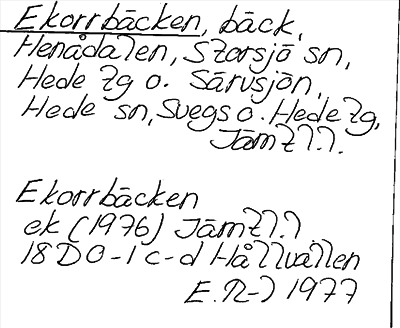 Ekorrbäcken, bäck,
Henådalen, Storsjö sn,
Hede tg o. Särvsjön,
Hede sn, Svegs o. Hede tg,
Jämtl.
Ekorrbäcken
ek (1976) Jämtl.
18D 0-1 c-d Hållvallen
1977